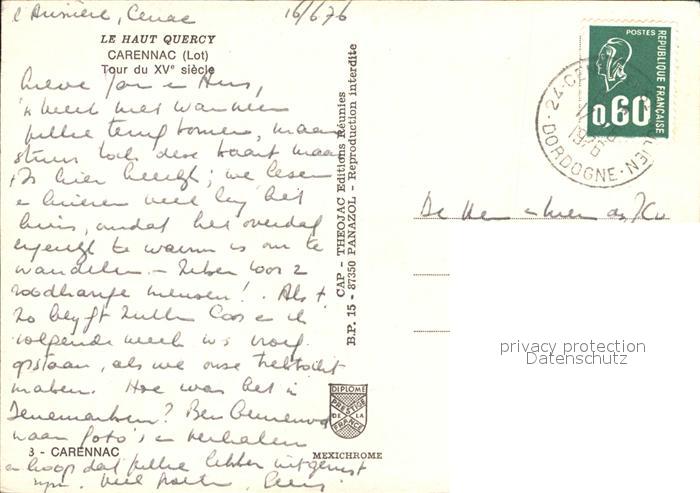 l'Aurière, Cenac 16/6 76
LE HAUT QUERCY
CARENNAC (Lot)
Tour du XVe siècle
Lieve Jan en Ans,
'k weet niet wanneer
jullie terug komen, maar
stuur toch deze kaart maar
't Is hier heerlijk; we lezen
en luieren veel bij het
huis, omdat het overdag
eigenlijk te warm is om te
wandelen. - Lekker voor 2
roodharige mensen! . Als 't
zo blijft zullen Coos en ik
volgende week wel vroeg
opstaan, als we onze trektocht
maken. Hoe was het in
Denemarken? Ben benieuwd
naar foto's en verhalen
3 - CARENNAC
en hoop dat jullie lekker uitgerust
zijn. Veel
MEXICHROME
CAP - THEOJAC Editions Réunies
B.P. 15 - 87350 PANAZOL - Reproduction interdite
DIPLOME
PRESTIGE
DE LA
FRANCE
POSTES
REPUBLIQUE FRANÇAISE
0,60
24
1976
DORDOGNE
De Hr en
privacy protection
Datenschutz